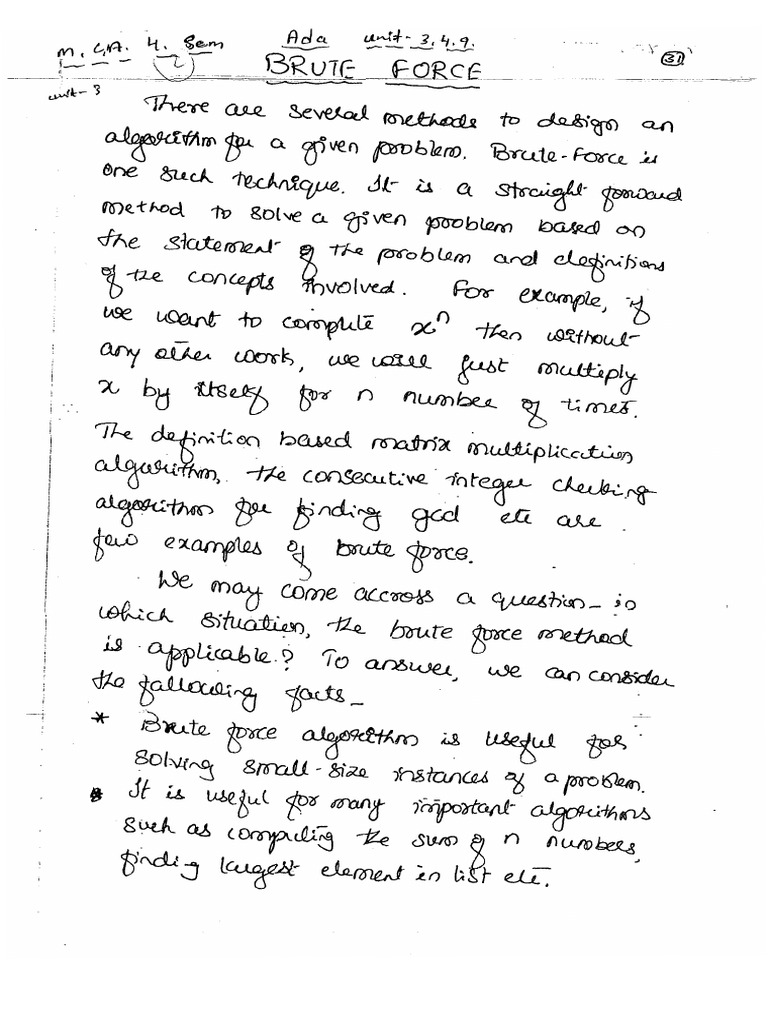 M.C.A. 4. Sem Ada unit-3.4.9. 31
BRUTE FORCE
unit-3
There are several methods to design an
algorithm for a given problem. Brute-Force is
one such technique. It is a straight forward
method to solve a given problem based on
the statement of the problem and definitions
of the concepts involved. For example, if
we want to compute xⁿ then without
any other work, we will just multiply
x by itself for n number of times.
The definition based matrix multiplication
algorithm, the consecutive integer checking
algorithm for finding gcd etc are
few examples of brute force.
We may come accross a question - in
which situation, the brute force method
is applicable? To answer, we can consider
the following facts -
* Brute force algorithm is useful for
solving small-size instances of a problem.
* It is useful for many important algorithms
such as computing the sum of n numbers,
finding largest element in list etc.